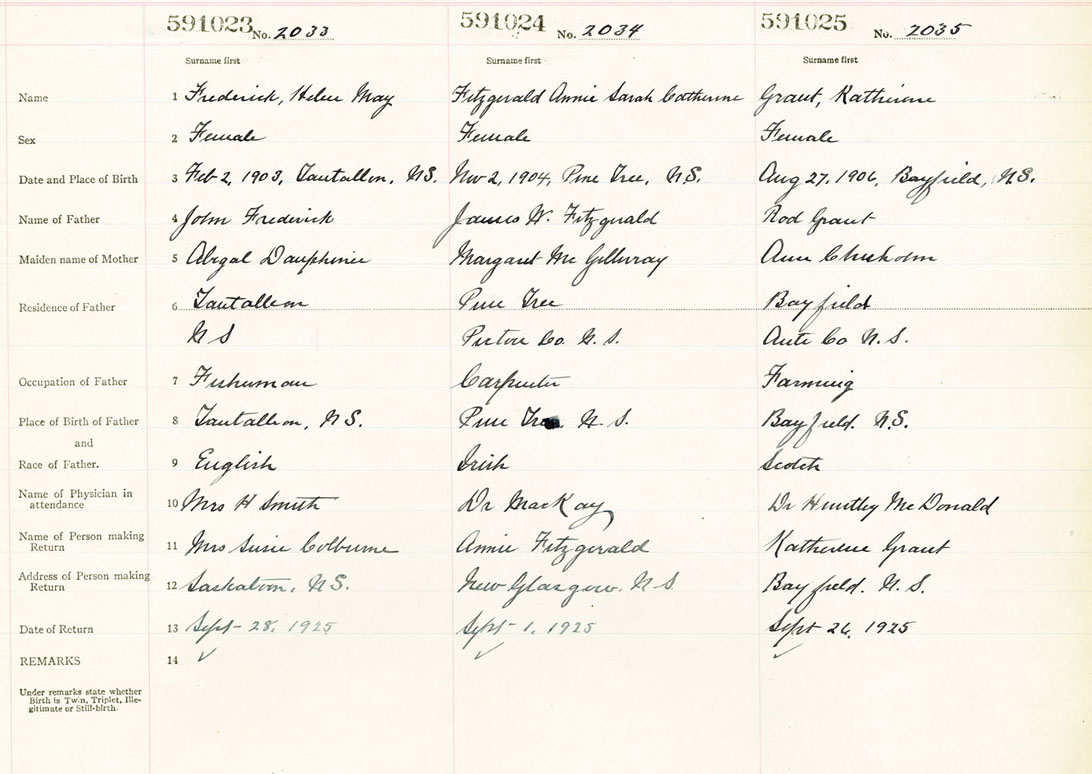 591023 No. 2033 591024 No. 2034 591025 No. 2035
Surname first Surname first Surname first
Name 1 Frederick, Helen May Fitzgerald Annie Sarah Catherine Grant, Katherine
Sex 2 Female Female Female
Date and Place of Birth 3 Feb 2, 1903, Tantallon, N.S. Nov 2, 1904, Pine Tree, N.S. Aug 27, 1906, Bayfield, N.S.
Name of Father 4 John Frederick James W. Fitzgerald Rod Grant
Maiden name of Mother 5 Abigal Dauphinie Margaret Mc Gillivray Ann Chisholm
Residence of Father 6 Tantallon Pine Tree Bayfield
N S Pictou Co. N. S. Ante Co N.S.
Occupation of Father 7 Fisherman Carpenter Farming
Place of Birth of Father 8 Tantallon, N S. Pine Tree N. S. Bayfield. N.S.
and
Race of Father. 9 English Irish Scotch
Name of Physician in
attendance 10 Mrs H Smith Dr MacKay Dr Huntley McDonald
Name of Person making
Return 11 Mrs Susie Colburne Annie Fitzgerald Katherine Grant
Address of Person making
Return 12 Saskatoon, N S. New Glasgow. N S Bayfield. N. S.
Date of Return 13 Sept - 28, 1925 Sept - 1, 1925 Sept 26, 1925
REMARKS 14 ✓ ✓ ✓
Under remarks state whether
Birth is Twin, Triplet, Ille-
gitimate or Still-birth.